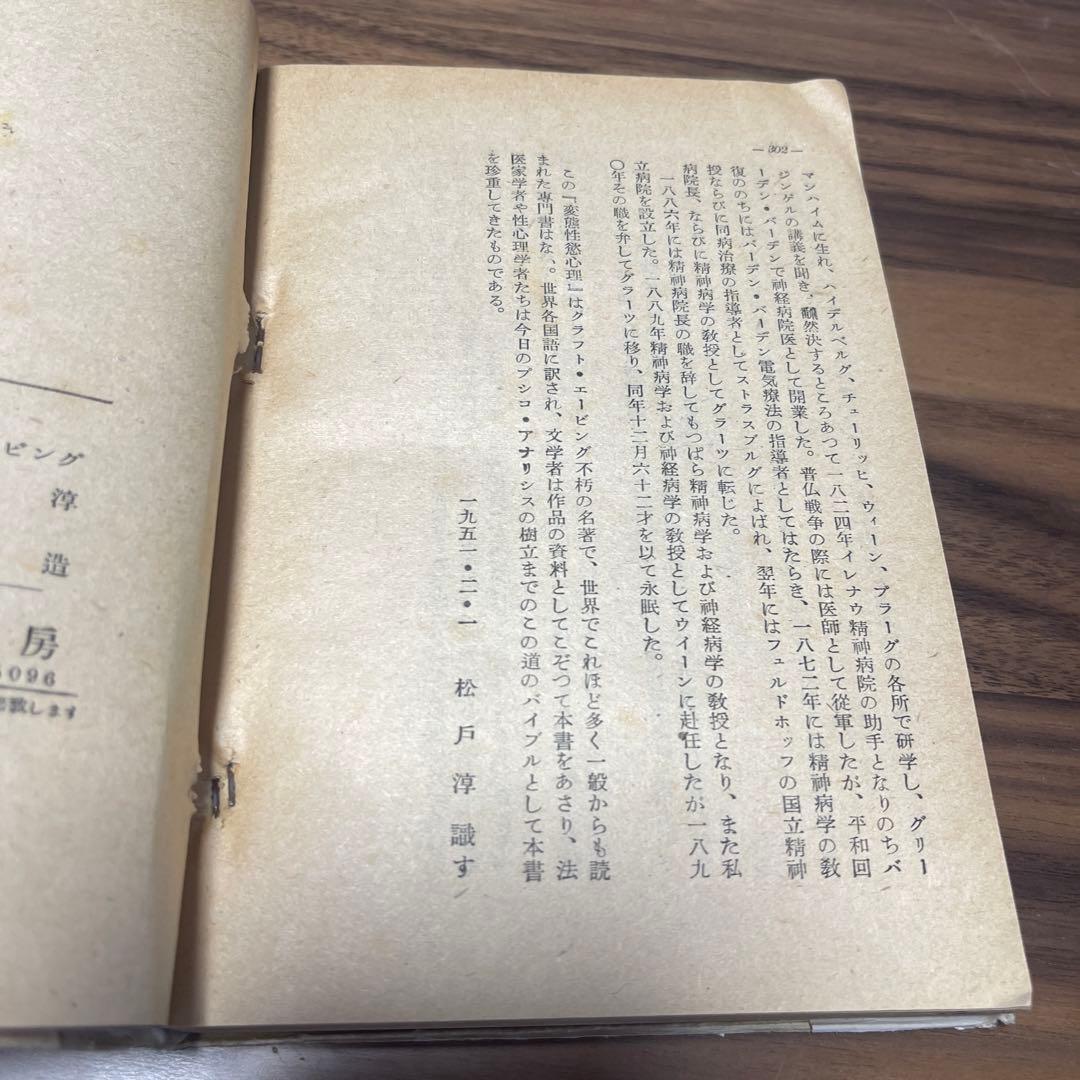 — 302 —
マンハイムに生れ、ハイデルベルグ、チューリッヒ、ウィーン、プラーグの各所で研学し、グリー
ジンゲルの講義を聞き、飜然決するところあつて一八二四年イレナウ精神病院の助手となりのちバ
ーデン・バーデンで神経病院医として開業した。普仏戦争の際には医師として従軍したが、平和回
復ののちにはバーデン・バーデン電気療法の指導者としてはたらき、一八七二年には精神病学の教
授ならびに同病治療の指導者としてストラスブルグによばれ、翌年にはフェルドホッフの国立精神
病院長、ならびに精神病学の教授としてグラーツに転じた。
一八八六年には精神病院長の職を辞してもつぱら精神病学および神経病学の教授となり、また私
立病院を設立した。一八八九年精神病学および神経病学の教授としてウイーンに赴任したが一八九
〇年その職を弁してグラーツに移り、同年十二月六十二才を以て永眠した。
この『変態性慾心理』はクラフト・エービング不朽の名著で、世界でこれほど多く一般からも読
まれた専門書はな、。世界各国語に訳され、文学者は作品の資料としてこぞつて本書をあさり、法
医家学者や性心理学者たちは今日のプシコ・アナリシスの樹立までのこの道のバイブルとして本書
を珍重してきたものである。
一九五一・二・一　松戸淳識す
ビング
淳
造
房
096
します